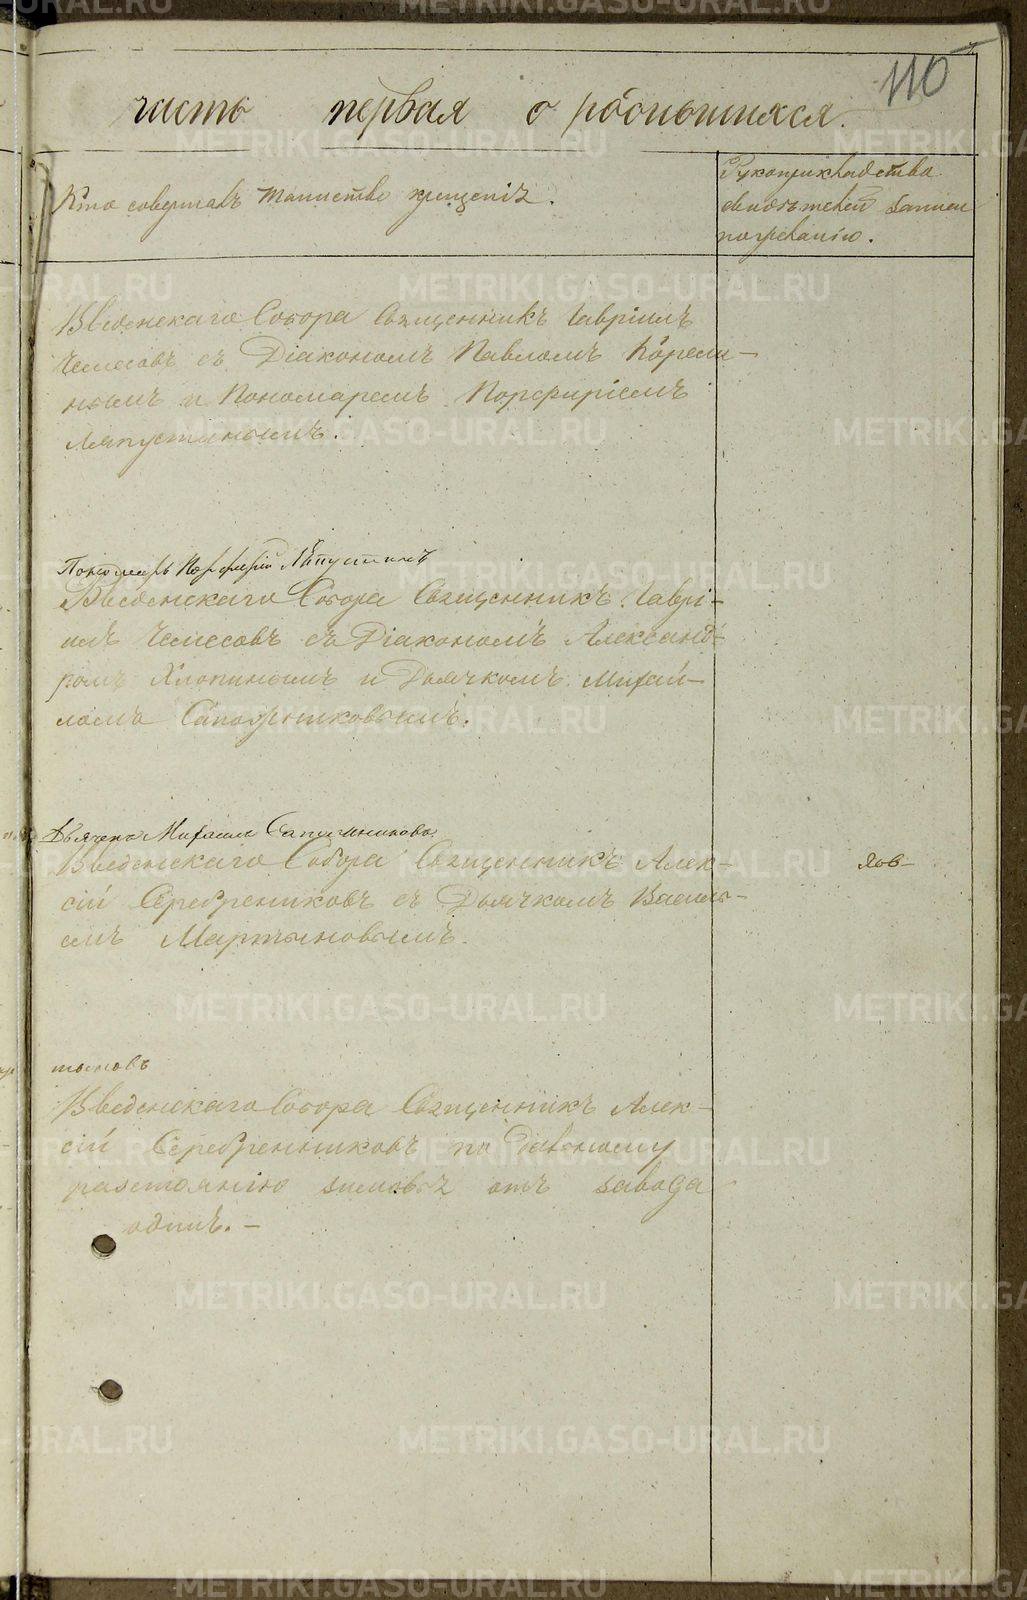 110
часть первая о родившихся.
Кто совершалъ таинство крещенія.
Рукоприкладства
свидѣтелей записи
по желанію.
Введенскаго Собора Священникъ Гавріилъ
Чемесовъ съ Діакономъ Павломъ Корели-
нымъ и Пономаремъ Порфиріемъ
Ляпустинымъ.
Пономарь Порфирій Ляпустинъ
Введенскаго Собора Священникъ Гаврі-
илъ Чемесовъ съ Діакономъ Александ-
ромъ Хлопинымъ и Дьячкомъ Михаи-
ломъ Сапожниковымъ.
Дьячекъ Михаилъ Сапожниковъ.
Введенскаго Собора Священникъ Алек-
сій Серебренниковъ съ Дьячкомъ Василь-
емъ Мартыновымъ.
тыновъ
Введенскаго Собора Священникъ Алек-
сій Серебренниковъ по дальному
разстоянію зимовья отъ завода
одинъ. —
METRIKI.GASO-URAL.RU